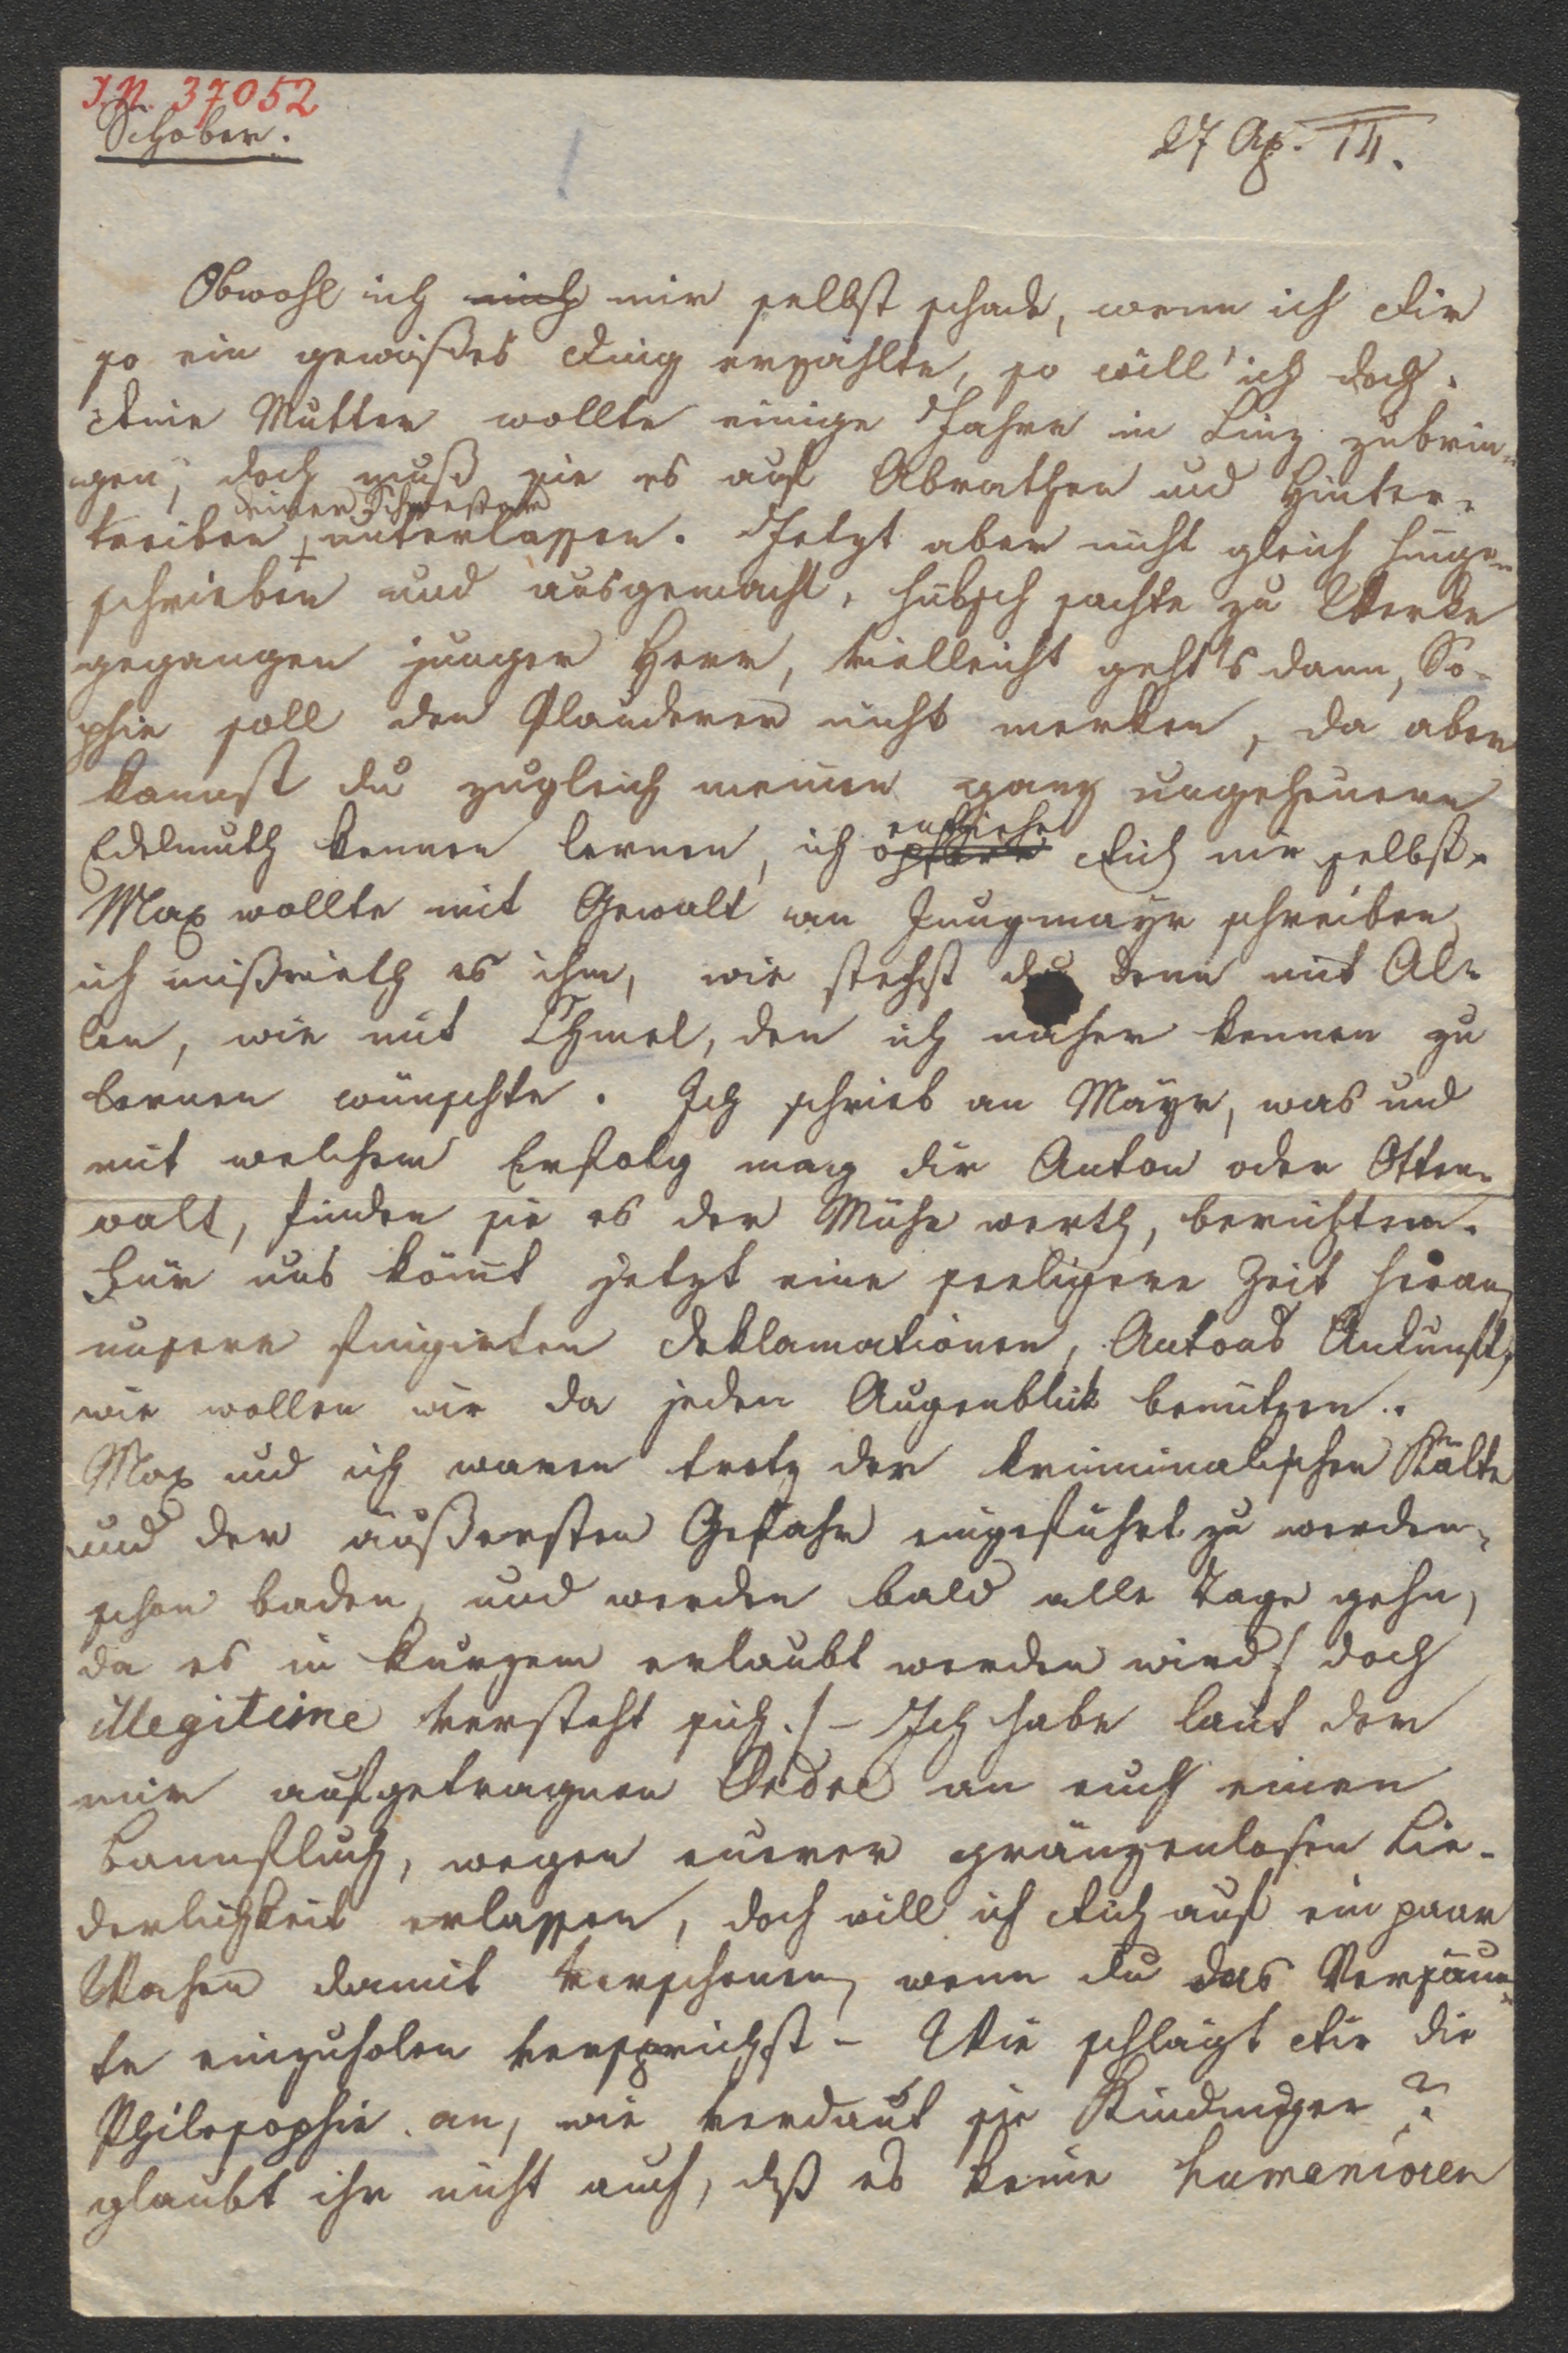 I.N. 37052
Schober.
27 Ap. III.
Obwohl ich mich mir selbst schade, wenn ich dir
so ein gewißes Ding erzählte, so will ich doch.
Deine Mutter wollte einige Jahre in Linz zubrin-
gen, doch muß sie es auf Abrathen und Hinter-
deiner Schwester
treiben unterlassen. Jetzt aber nicht gleich hinge-
schrieben und ausgemacht, hübsch sachte zu Werke
gegangen junger Herr, vielleicht geht's dann, So-
phie soll den Plauderer nicht merken, da aber
kannst du zugleich meinen ganz ungeheuern
entziehe
Edelmuth kennen lernen, ich opfere dich mir selbst.
Max wollte mit Gewalt an Jungmayr schreiben,
ich mißrieth es ihm, wie stehst du denn mit Al-
len, wie mit Chmel, den ich näher kennen zu
lernen wünschte. Ich schrieb an Mayr, was und
mit welchem Erfolg mag dir Anton oder Otten-
walt, finden sie es der Mühe werth, berichten.
Für uns kömt jetzt eine seeligere Zeit heran,
unsere fingirten Deklamationen, Antons Ankunft,
wie wollen wir da jeden Augenblick benützen.
Max und ich waren trotz der kriminalischen Kälte
und der äußersten Gefahr eingeführt zu werden,
schon baden, und werden bald alle Tage gehn,
da es in kurzem erlaubt werden wird / doch
illegitime versteht sich. / – Ich habe laut der
mir aufgetragnen Ordre an euch einen
Bannfluch, wegen eurer gränzenlosen Lie-
derlichkeit erlassen, doch will ich dich auf ein paar
Wochen damit verschonen, wenn du das Versäum-
te einzuholen versprichst – Wie schlägt dir die
Philosophie an, wie verdaut sie Kindinger?
glaubt ihr nicht auch, daß es keine humanioren